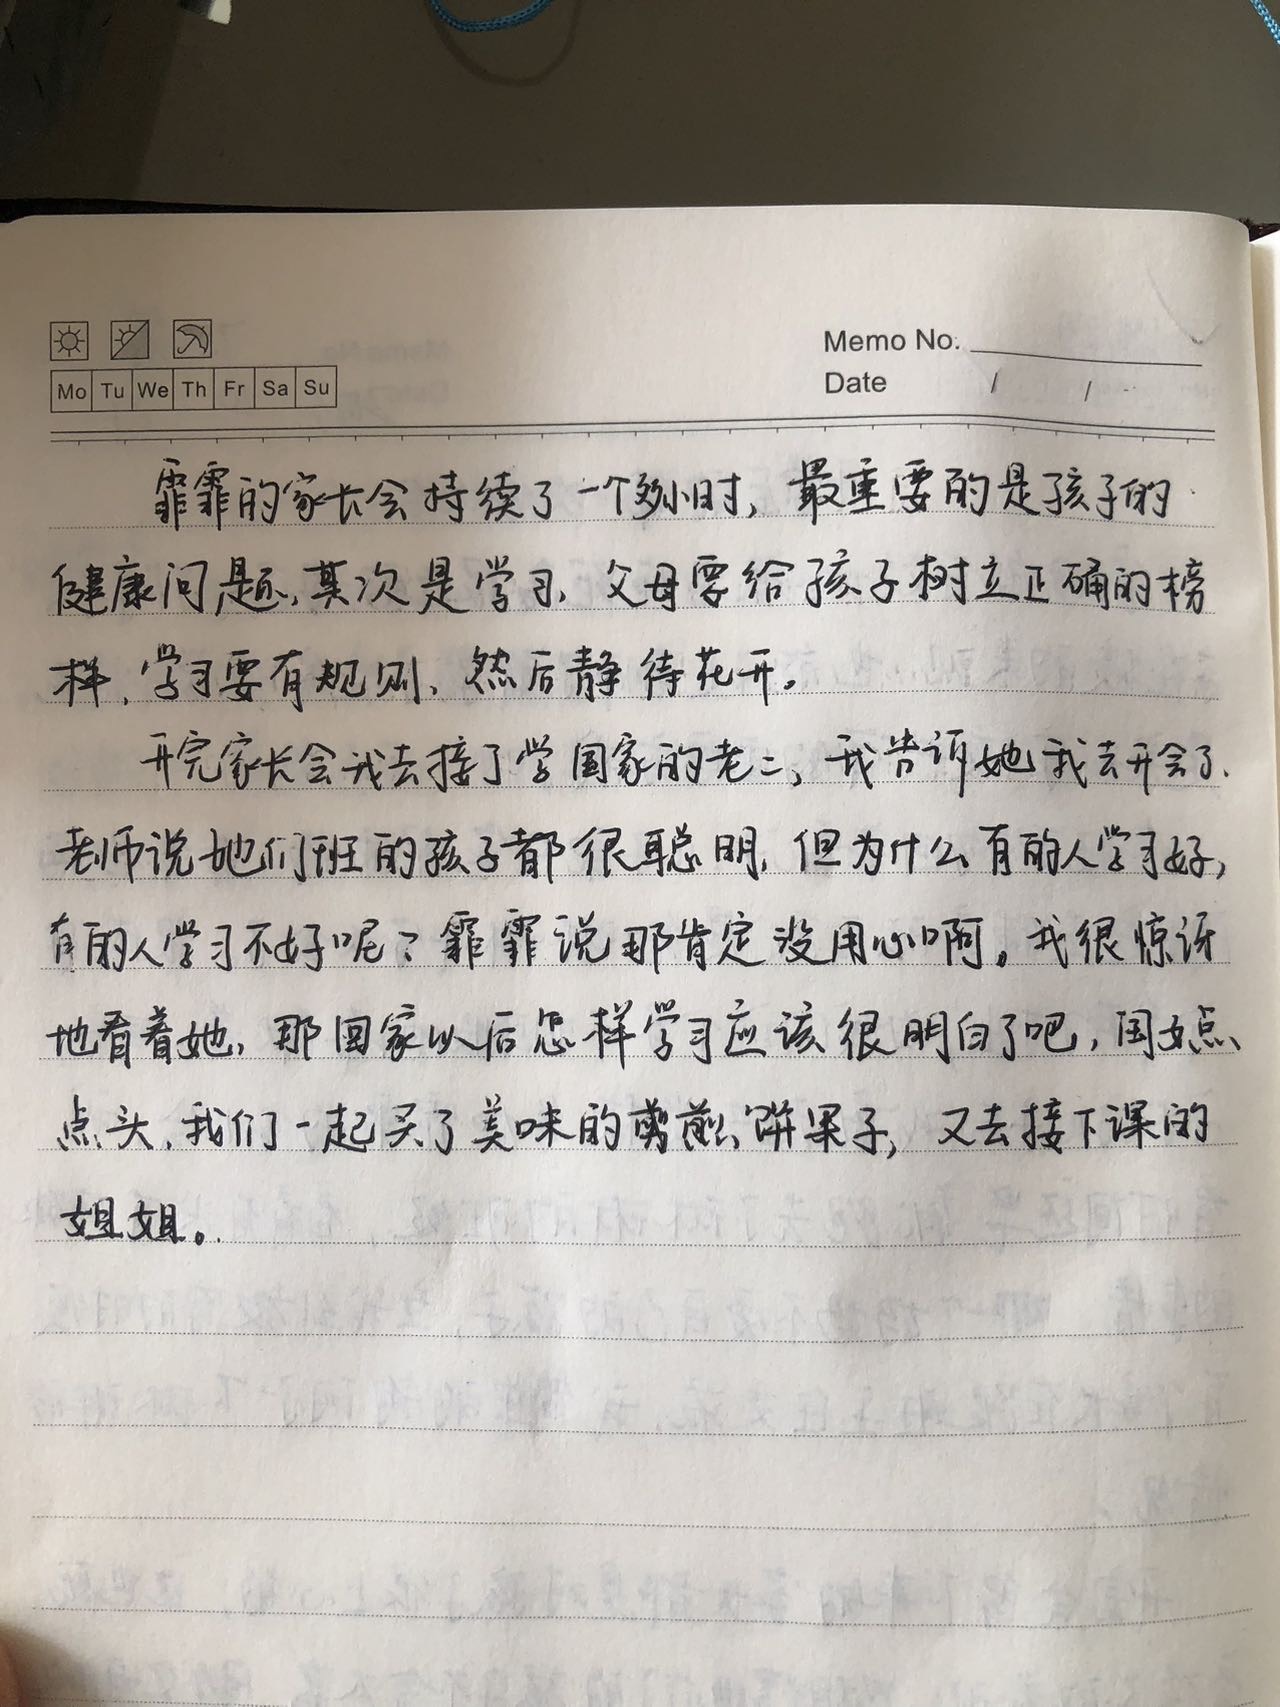 Memo No.
Mo Tu We Th Fr Sa Su
Date / /
霏霏的家长会持续了一个多小时，最重要的是孩子的
健康问题，其次是学习，父母要给孩子树立正确的榜
样，学习要有规则，然后静待花开。
开完家长会我去接了学国家的老二，我告诉她我去开会了，
老师说她们班的孩子都很聪明，但为什么有的人学习好，
有的人学习不好呢？霏霏说那肯定没用心啊。我很惊讶
地看着她，那回家以后怎样学习应该很明白了吧，闺女点
点头，我们一起买了美味的煎饼果子，又去接下课的
姐姐。